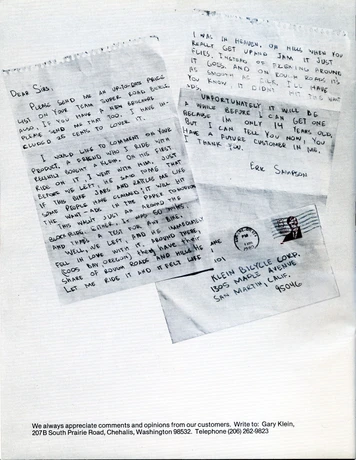 DEAR SIRS,
PLEASE SEND ME AN UP-TO-DATE PRICE
LIST ON YOUR TEAM SUPER ROAD BICYCLE
ALSO, IF YOU HAVE A NEW BROCHURE
PLEASE SEND ME TOO. I HAVE IN-
CLUDED 25 CENTS TO COVER IT.
I WOULD LIKE TO COMMENT ON YOUR
PRODUCT. A FRIEND WHO I RIDE WITH
RECENTLY BOUGHT A KLEIN. ON HIS FIRST
RIDE ON IT, I WENT WITH HIM. JUST
BEFORE WE LEFT, HE SAID THAT
IF THIS BIKE JARS AND RATTLES ME LIKE
SOME PEOPLE HAVE CLAIMED, IT WILL HIT
THE WANT-ADS OF THE PAPER TOMORROW
THIS WASN'T JUST AN AROUND THE
BLOCK RIDE EITHER. IT WAS 50 MILES
AND THATS A TEST FOR ANY BIKE.
WELL, WE LEFT, AND HE IMMEDIATELY
FELL IN LOVE WITH IT. AROUND HERE,
(COOS BAY, OREGON) THEY HAVE THEIR
SHARE OF ROUGH ROADS AND HILLS. HE
LET ME RIDE IT AND IT FELT LIKE
I WAS IN HEAVEN. ON HILLS WHEN YOU
REALLY GET UP AND JAM IT JUST
FLIES. INSTEAD OF FLEXING AROUND
IT GOES. AND ON ROUGH ROADS ITS
AS SMOOTH AS SILK.
YOU KNOW, IT DIDN'T HIT THE WANT
UNFORTUNATELY IT WILL BE
A WHILE BEFORE I CAN GET ONE
BECAUSE I'M ONLY YEARS OLD,
BUT I CAN TELL YOU NOW, YOU
HAVE A FUTURE CUSTOMER IN ME.
THANK YOU,
ERIC
KLEIN BICYCLE CORP.
1305 MAPLE AVENUE
SAN MARTIN, CALIF.
95046
We always appreciate comments and opinions from our customers. Write to: Gary Klein,
207B South Prairie Road, Chehalis, Washington 98532. Telephone (206) 262-9823